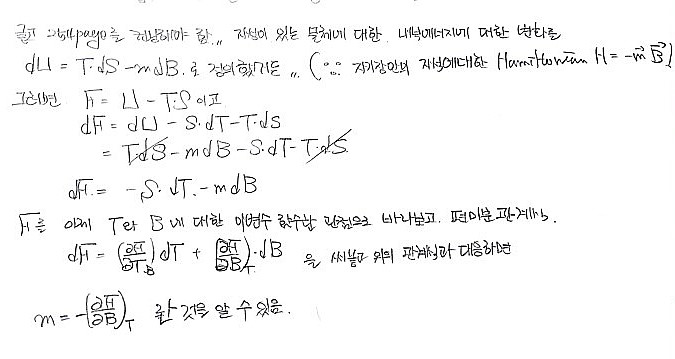 그리고 254page를 참남해야 함.,, 자성이 있는 물체에 대한 내부에너지에 대한 변화를
dU = T·dS - mdB. 로 정의했거든,, (∵ 자기장안의 자성에대한 Hamiltonian H = -m⃗ B⃗)
그러면 F = U - T·S 이고
dF = dU - S·dT - T·dS
= T·dS - mdB - S·dT - T·dS
dF = -S·dT - mdB
F를 이제 T와 B에 대한 이변수 함수란 관점으로 바라보고. 편미분 관계식.
dF = (∂F/∂T)_B dT + (∂F/∂B)_T·dB 을 써놓고 위의 관계식과 대응하면
m = -(∂F/∂B)_T 란 것을 알 수 있음.